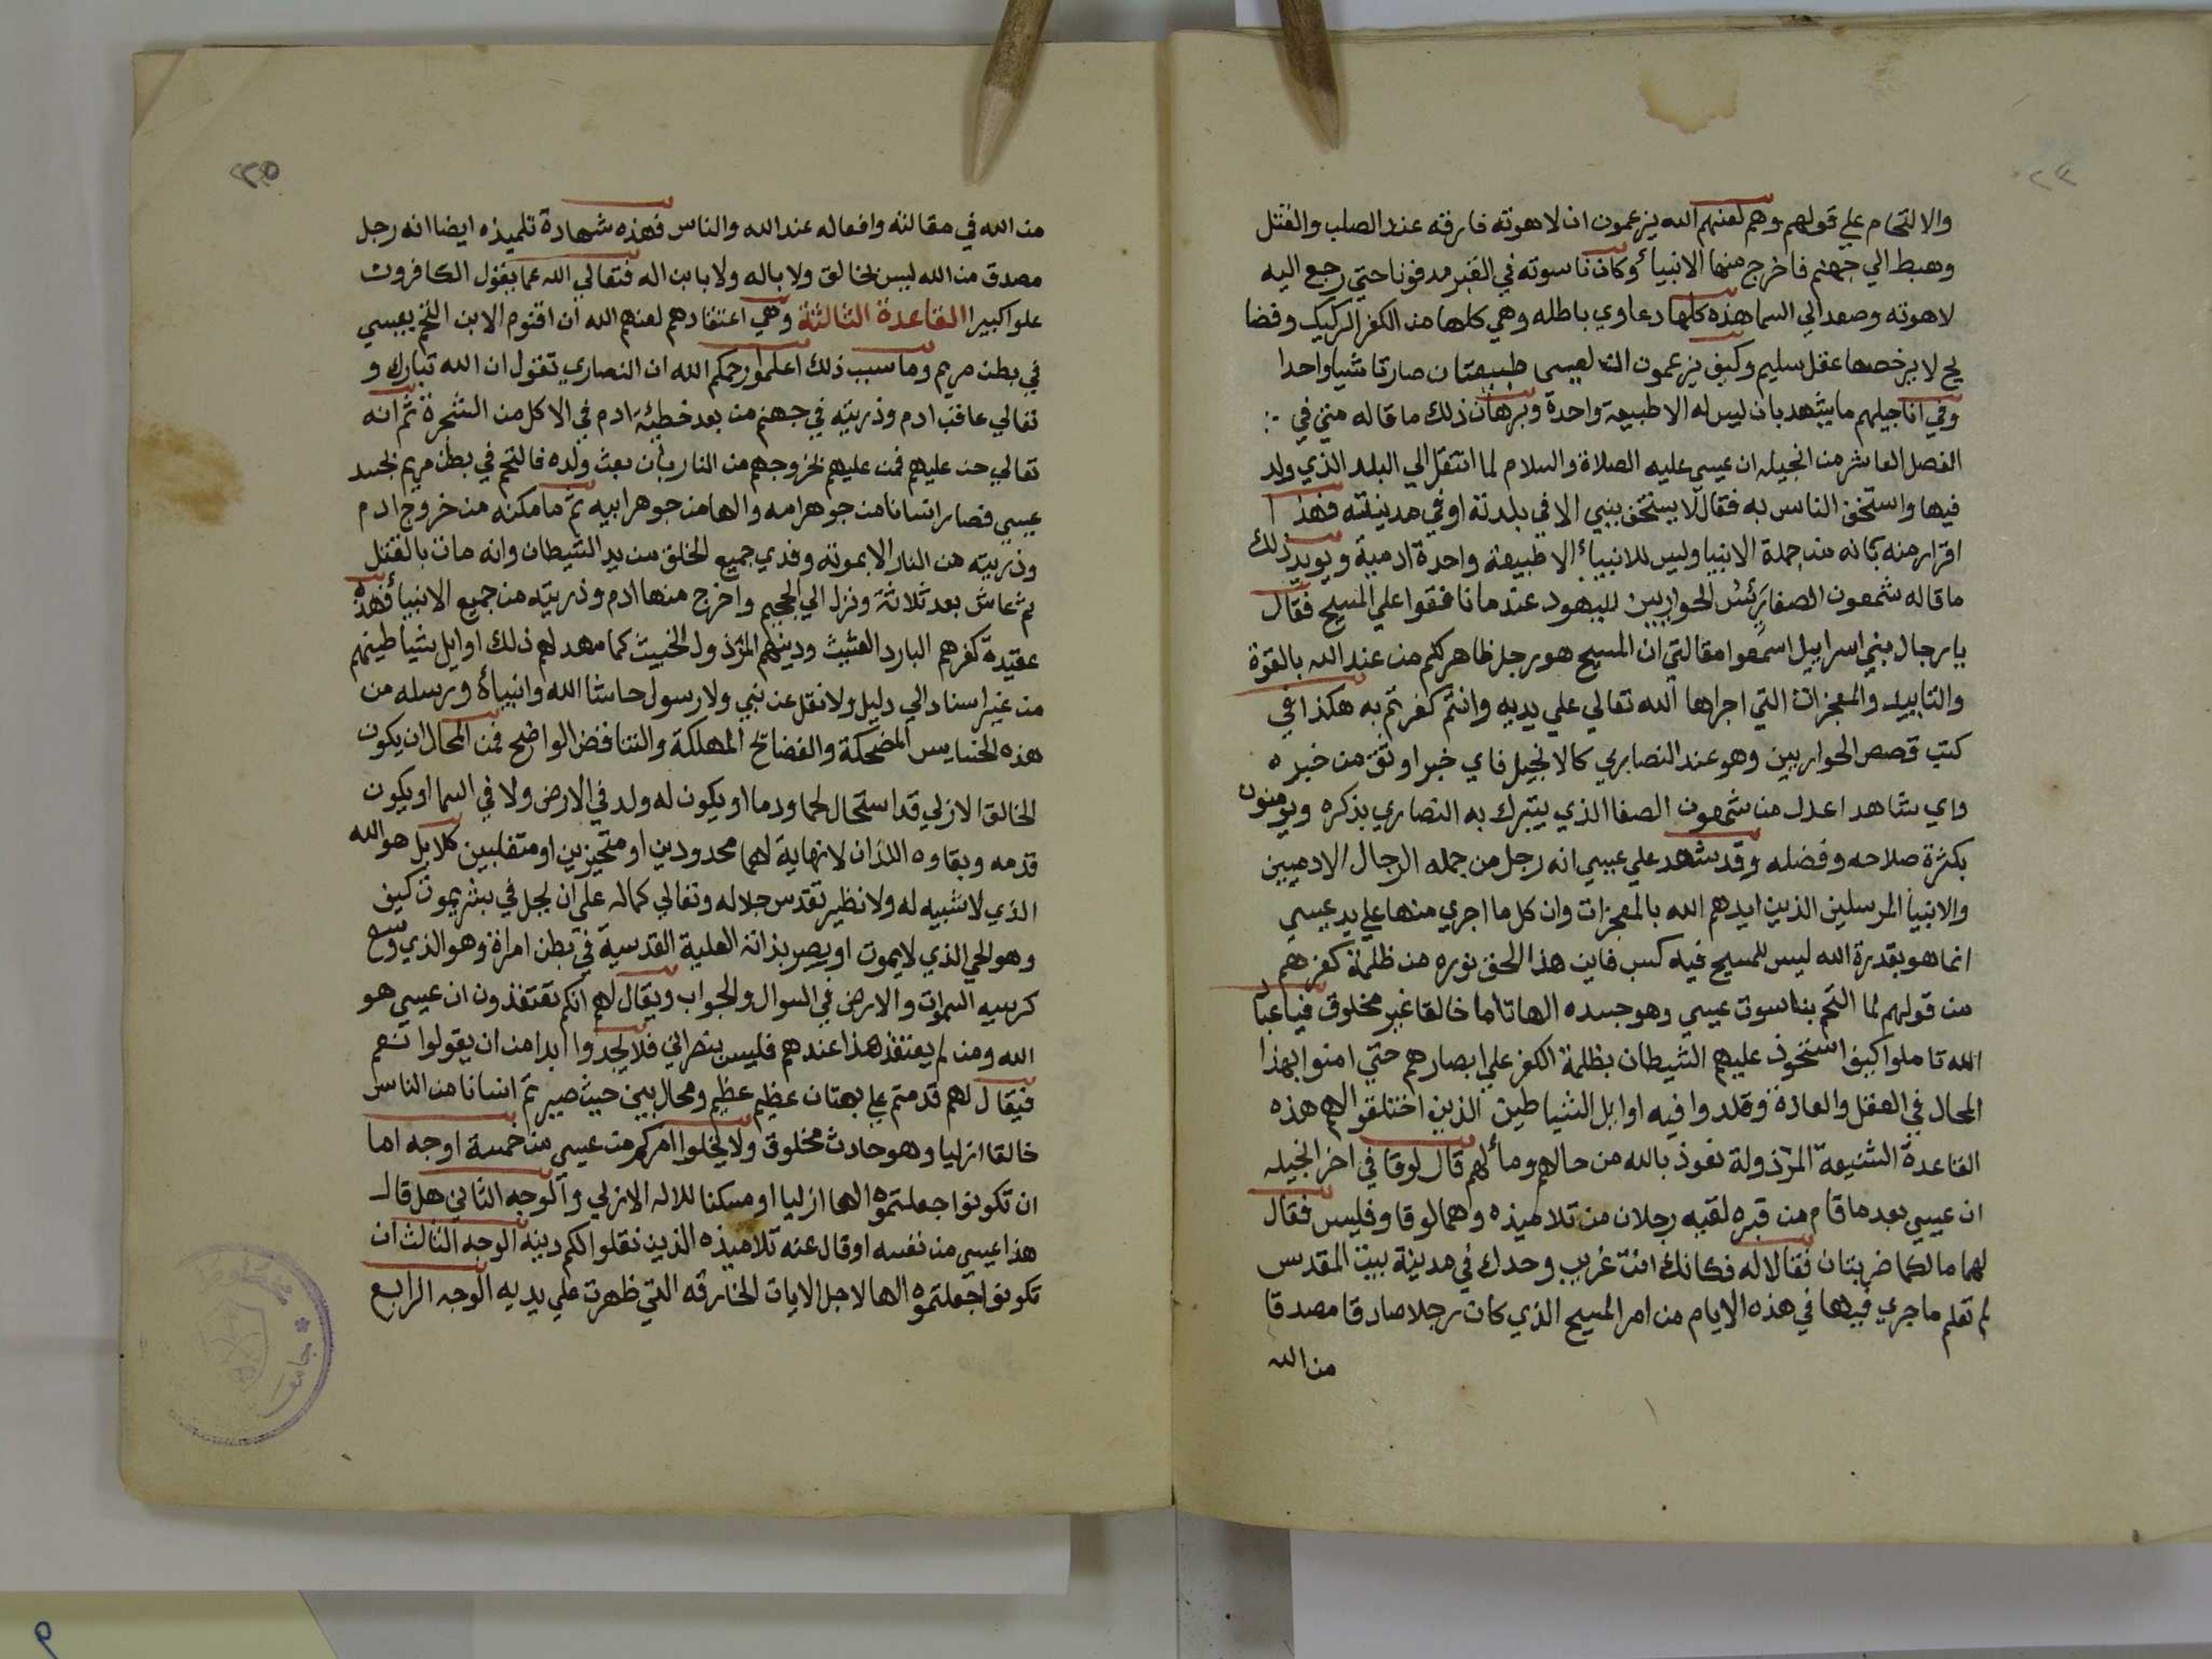 ٢٤
والالتحام علي قولهم وهم لعنهم الله يزعمون ان لاهوته فارقه عند الصلب والقتل
وهبط الي جهنم فاخرج منها الانبياء وكان ناسوته في القبر مدفونا حتي رجع اليه
لاهوته وصعد الي السما هذه كلها دعاوي باطله وهي كلها من الكفر الركيك وفضا
يح لا يرخصها عقل سليم وكيف يزعمون ان لعيسي طبيعتان صارتا شيا واحدا
وفي اناجيلهم ما يشهد بان ليس له الا طبيعة واحدة وبرهان ذلك ما قاله متي في
الفصل العاشر من انجيله ان عيسي عليه الصلاة والسلام لما انتقل الي البلد الذي ولد
فيها واستخف الناس به فقال لا يستخف بنبي الا في بلدته او في مدينته فهذا
اقرار منه بانه من جملة الانبيا وليس للانبياء الا طبيعة واحدة ادمية ويويد ذلك
ما قاله شمعون الصفا رئيس الحواريين لليهود عندما نافقوا علي المسيح فقال
يا رجال بني اسراييل اسمعوا مقالتي ان المسيح هو رجل ظاهر لكم من عند الله بالقوة
والتاييد والمعجزات التي اجراها الله تعالي علي يديه وانتم كفرتم به هكذا في
كتب قصص الحواريين وهو عند النصاري كالانجيل فاي خبر اوثق من خبره
واي شاهد اعدل من شمعون الصفا الذي يتبرك به النصاري بذكره ويومنون
بكثرة صلاحه وفضله وقد شهد علي عيسي انه رجل من جمله الرجال الادميين
والانبيا المرسلين الذين ايدهم الله بالمعجزات وان كل ما اجري منها علي يد عيسي
انما هو بقدرة الله ليس للمسيح فيه كسب فاين هذا الحق نوره من ظلمة كفرهم
من قولهم لما التحم بناسوت عيسي وهو جسده الها تاما خالقا غير مخلوق فيا عبا
الله تاملوا كيف استحوذ عليهم الشيطان بظلمة الكفر علي ابصارهم حتي امنوا بهذا
المحال في العقل والعادة وقلدوا فيه اوايل الشياطين الذين اختلقوا لهم هذه
القاعدة الشنيعة المرذولة نعوذ بالله من حالهم ومألهم قال لوقا في اخر انجيله
ان عيسي بعدما قام من قبره لقيه رجلان من تلاميذه وهما لوقا وفليس فقال
لهما مالكما ضربتان فقالا له فكانك انت غريب وحدك في مدينة بيت المقدس
لم تعلم ما جري فيها في هذه الايام من امر المسيح الذي كان رجلا صادقا مصدقا
من الله
٢٥
من الله في مقالته وافعاله عند الله والناس فهذه شهادة تلميذه ايضا انه رجل
مصدق من الله ليس بخالق ولا باله ولا بابن اله فتعالي الله عما يقول الكافرون
علوا كبيرا القاعدة الثالثة وهي اعتقادهم لعنهم الله ان اقنوم الابن التحم بعيسي
في بطن مريم وما سبب ذلك اعلموا رحمكم الله ان النصاري تقول ان الله تبارك و
تعالي عاقب ادم وذريته في جهنم من بعد خطيئة ادم في الاكل من الشجرة ثم انه
تعالي حن عليهم فمن عليهم بخروجهم من النار بان بعث ولده فالتحم في بطن مريم بجسد
عيسي فصار انسانا من جوهر امه والها من جوهر ابيه ثم ما مكنه من خروج ادم
وذريته من النار الا بموته وفدي جميع الخلق من يد الشيطان وانه مات بالقتل
ثم عاش بعد ثلاثة ونزل الي الجحيم واخرج منها ادم وذريته من جميع الانبياء فهذه
عقيدة كفرهم البارد الغثيث ودينهم المرذول الخبيث كما مهد لهم ذلك اوايل شياطينهم
من غير اسناد الي دليل ولا نقل عن نبي ولا رسول حاشا الله وانبياءه ورسله من
هذه الخسايس المضحكة والفضائح المهلكة والتناقض الواضح فمن المحال ان يكون
الخالق الازلي قد استحال لحما ودما او يكون له ولد في الارض ولا في السما او يكون
قدمه وبقاوه اللذان لا نهاية لهما محدودين او متحيزين او متقلبين كلا بل هو الله
الذي لا شبيه له ولا نظير تقدس جلاله وتعالي كماله علي ان يحل في بشر يموت كيف
وهو الحي الذي لا يموت او يصير بذاته العلية القدسية في بطن امراة وهو الذي وسع
كرسيه السموات والارض في السوال والجواب ويقال لهم انكم تعتقدون ان عيسي هو
الله ومن لم يعتقد هذا عندهم فليس بنصراني فلا يجدوا ابدا من ان يقولوا نعم
فيقال لهم قدمتم علي بهتان عظيم عظيم ومحال بين حيث صيرتم انسانا من الناس
خالقا ازليا وهو حادث مخلوق ولا يخلوا امركم من عيسي من خمسة اوجه اما
ان تكونوا جعلتموه الها ازليا او مسكنا للاله الازلي والوجه الثاني هل قال
هذا عيسي من نفسه او قال عنه تلاميذه الذين نقلوا لكم دينه الوجه الثالث ان
تكونوا جعلتموه الها لاجل الايات الخارقه التي ظهرت علي يديه الوجه الرابع
جامعة
٩